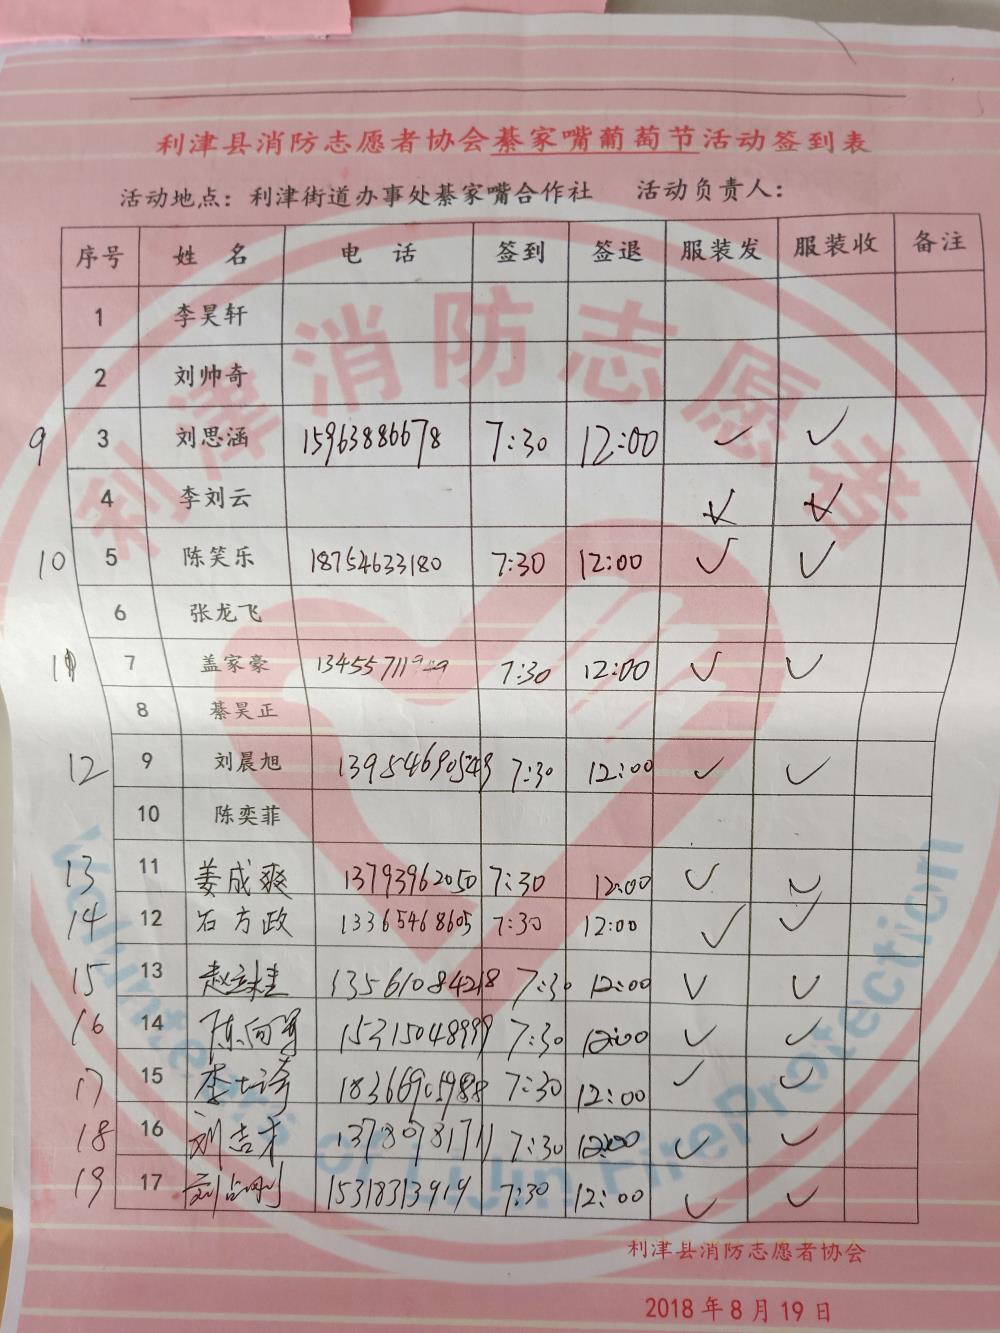 利津县消防志愿者协会綦家嘴葡萄节活动签到表
活动地点：利津街道办事处綦家嘴合作社 活动负责人：
序号 姓 名 电 话 签到 签退 服装发 服装收 备注
1 李昊轩
2 刘帅奇
9 3 刘思涵 15963886678 7:30 12:00 ✓ ✓
4 李刘云
10 5 陈笑乐 18754633180 7:30 12:00 ✓ ✓
6 张龙飞
11 7 盖家豪 7:30 12:00 ✓ ✓
8 綦昊正
12 9 刘晨旭 13954690549 7:30 12:00 ✓ ✓
10 陈奕菲
13 11 姜成爽 13793962050 7:30 12:00 ✓ ✓
14 12 石方政 13365468605 7:30 12:00 ✓ ✓
15 13 13561084218 7:30 12:00 ✓ ✓
16 14 15215048999 7:30 12:00 ✓ ✓
17 15 7:30 12:00 ✓ ✓
18 16 刘吉才 7:30 12:00 ✓ ✓
19 17 15318313919 7:30 12:00 ✓ ✓
利津消防志愿者
Volunteers of LiJin Fire Protection
利津县消防志愿者协会
2018年8月19日